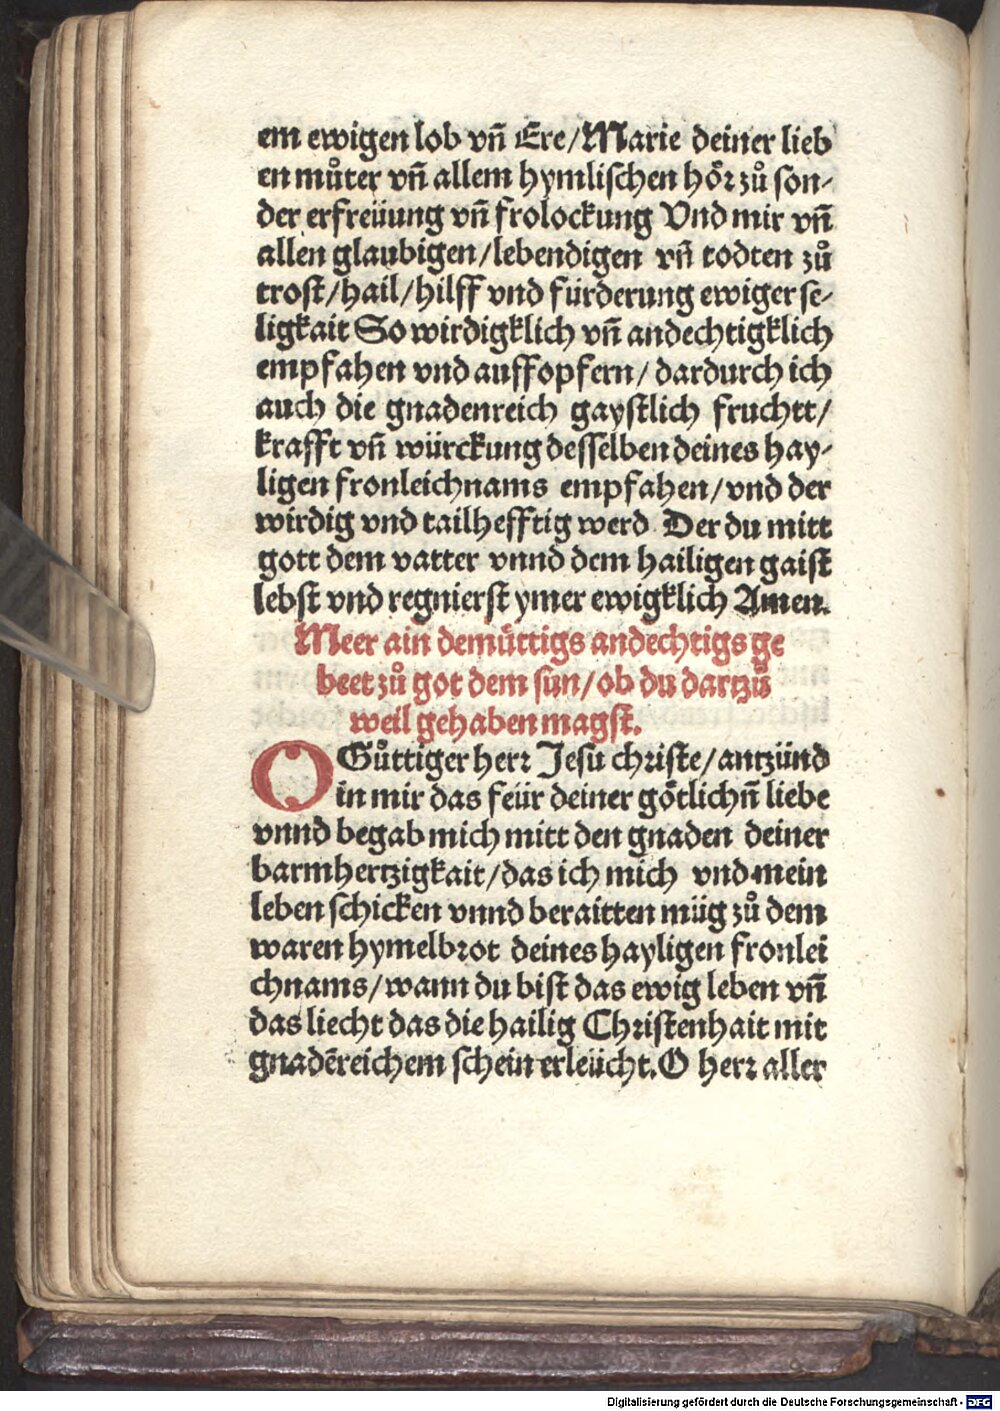 em ewigen lob vñ Ere/Marie deiner lieb
en můter vñ allem hymlischen hör zů son-
der erfreüung vñ frolockung Vnd mir vñ
allen glaubigen/lebendigen vñ todten zů
trost/hail/hilff vnd fürderung ewiger se-
ligkait So wirdigklich vñ andechtigklich
empfahen vnd auffopfern/ dardurch ich
auch die gnadenreich gaystlich fruchtt/
krafft vñ würckung desselben deines hay-
ligen fronleichnams empfahen/vnd der
wirdig vnd tailhefftig werd Der du mitt
gott dem vatter vnnd dem hailigen gaist
lebst vnd regnierst ymer ewigklich Amen.
Meer ain demüttigs andechtigs ge
beet zů got dem sun/ob du dartzů
weil gehaben magst.
O Gůttiger herr Jesu christe/antzünd
in mir das feür deiner götlichñ liebe
vnnd begab mich mitt den gnaden deiner
barmhertzigkait/das ich mich vnd mein
leben schicken vnnd beraitten müg zů dem
waren hymelbrot deines hayligen fronlei
chnams/wann du bist das ewig leben vñ
das liecht das die hailig Christenhait mit
gnadēreichem schein erleücht. O herr aller
Digitalisierung gefördert durch die Deutsche Forschungsgemeinschaft - DFG